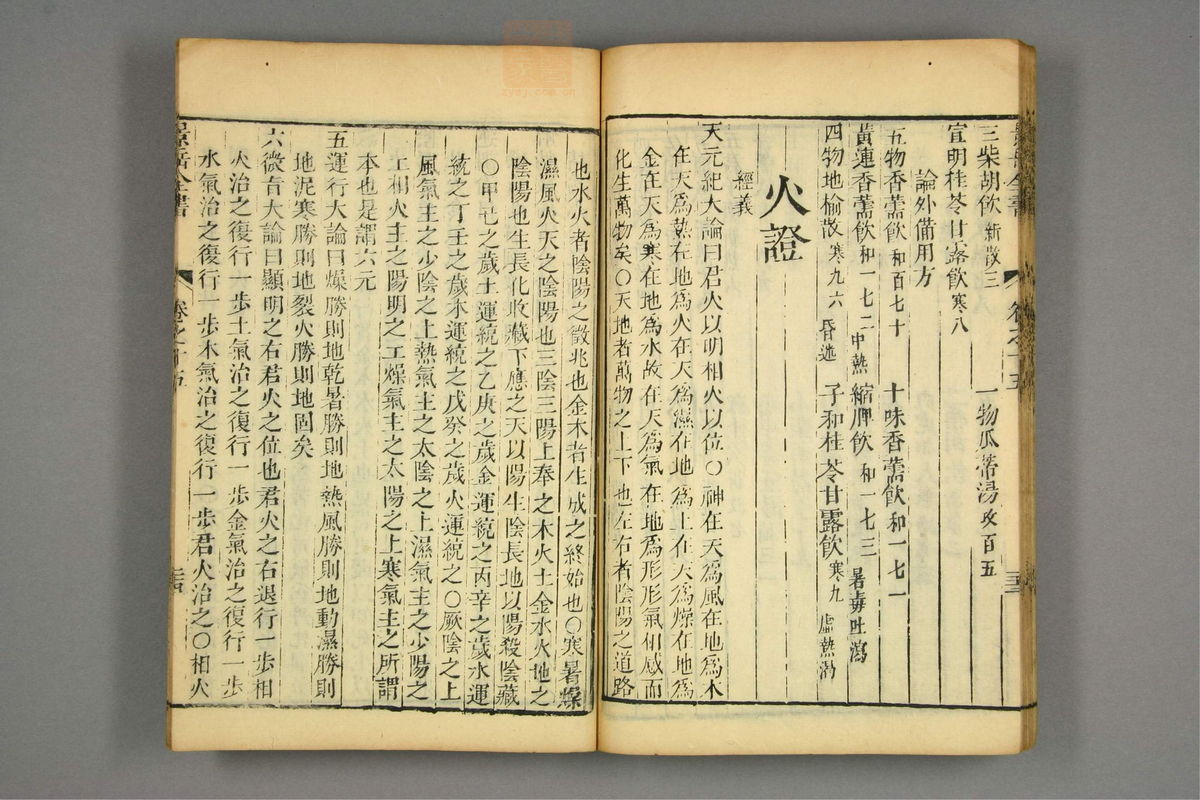 三柴胡飲新散三　一物瓜蒂湯攻百五
宜明桂苓甘露飲寒八
論外備用方
五物香薷飲和百七十　十味香薷飲和一七一
黃連香薷飲和一七二中熱　縮脾飲和一七三暑毒吐瀉
四物地榆散寒九六昏迷　子和桂苓甘露飲寒九虛熱渴
火證
經義
天元紀大論曰君火以明相火以位○神在天為風在地為木
在天為熱在地為火在天為濕在地為土在天為燥在地為
金在天為寒在地為水故在天為氣在地為形形氣相感而
化生萬物矣○天地者萬物之上下也左右者陰陽之道路
也水火者陰陽之徵兆也金木者生成之終始也○寒暑燥
濕風火天之陰陽也三陰三陽上奉之木火土金水火地之
陰陽也生長化收藏下應之天以陽生陰長地以陽殺陰藏
○甲己之歲土運統之乙庚之歲金運統之丙辛之歲水運
統之丁壬之歲木運統之戊癸之歲火運統之○厥陰之上
風氣主之少陰之上熱氣主之太陰之上濕氣主之少陽之
上相火主之陽明之上燥氣主之太陽之上寒氣主之所謂
本也是謂六元
五運行大論曰燥勝則地乾暑勝則地熱風勝則地動濕勝則
地泥寒勝則地裂火勝則地固矣
六微旨大論曰顯明之右君火之位也君火之右退行一步相
火治之復行一步土氣治之復行一步金氣治之復行一步
水氣治之復行一步木氣治之復行一步君火治之○相火
景岳全書
卷之十五
zysj.com.cn